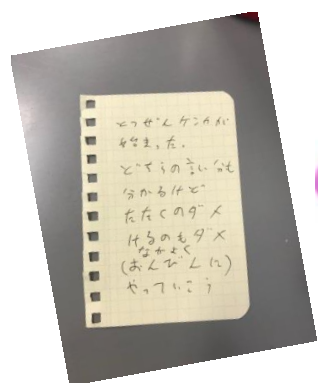 とつぜんケンカが
始まった。
どちらの言い分も
分かるけど
たたくのダメ
けるのもダメ
なかよく
(おんびんに)
やっていこう